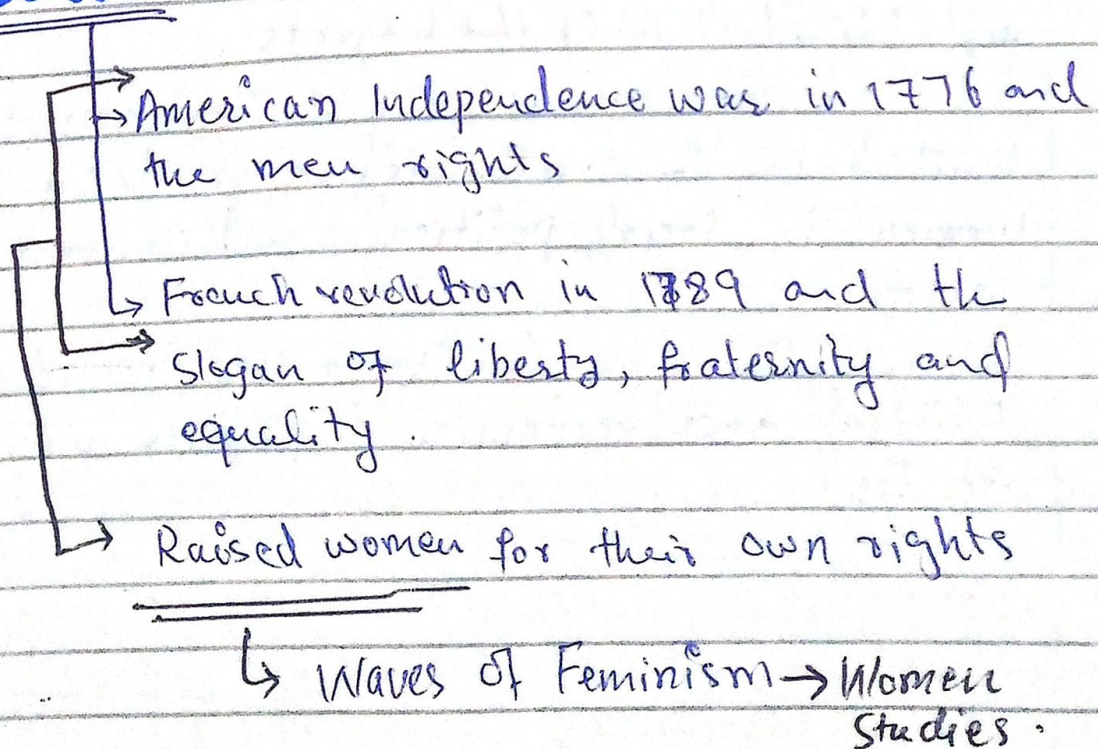 American Independence was in 1776 and
the men rights
French revolution in 1789 and the
slogan of liberty, fraternity and
equality.
Raised women for their own rights
Waves of Feminism → Women
Studies.